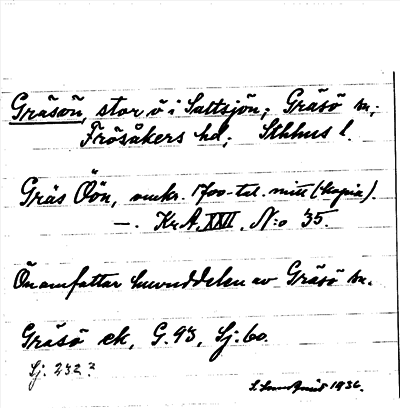 Gräsön, stor ö i Saltsjön; Gräsö sn;
Frösåkers hd; Sthlms l.
Gräs Öön, omkr. 1700-tal. mitt (kopia).
—. KrA, XXII, N:o 35.
Ön omfattar huvuddelen av Gräsö sn.
Gräsö ek, G. 93, Sj: 60.
Sj. 232?
1936.